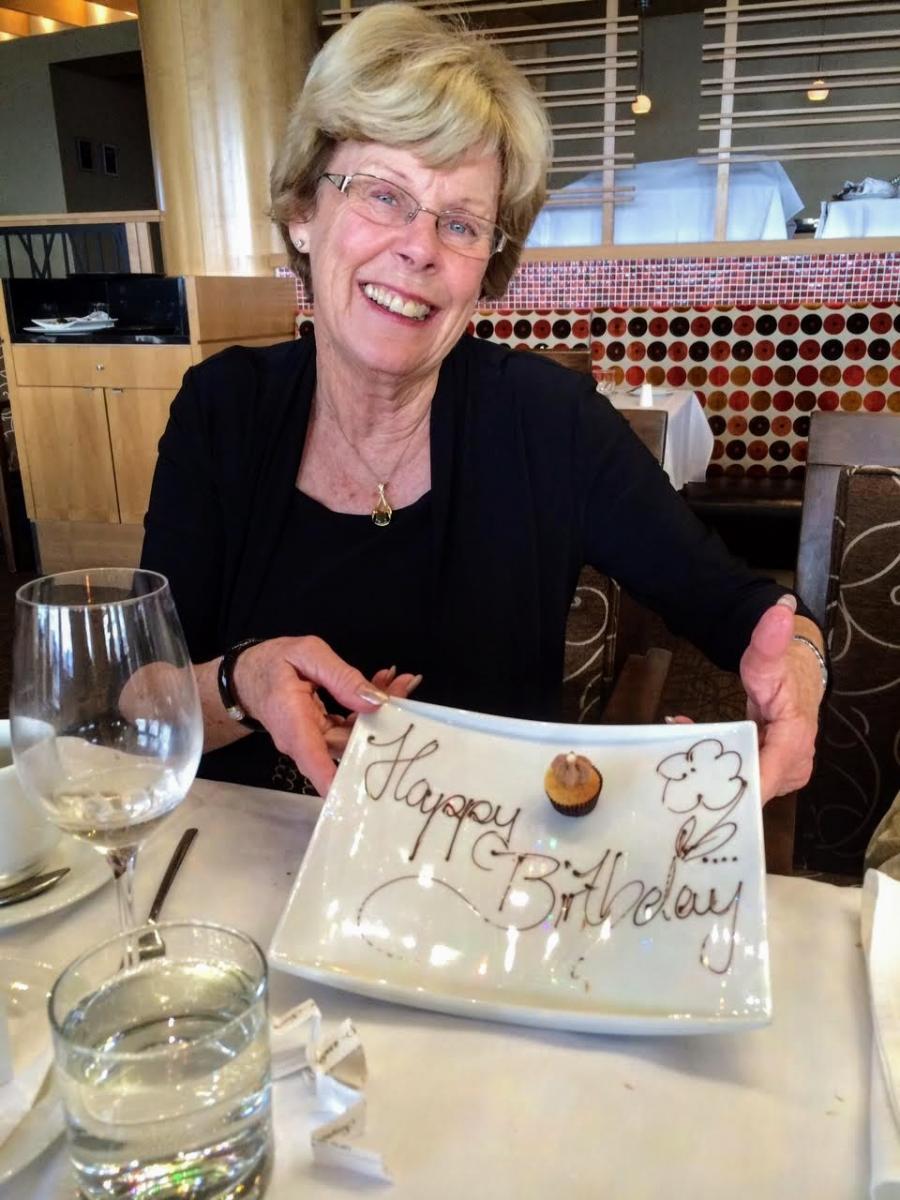 Happy
Birthday